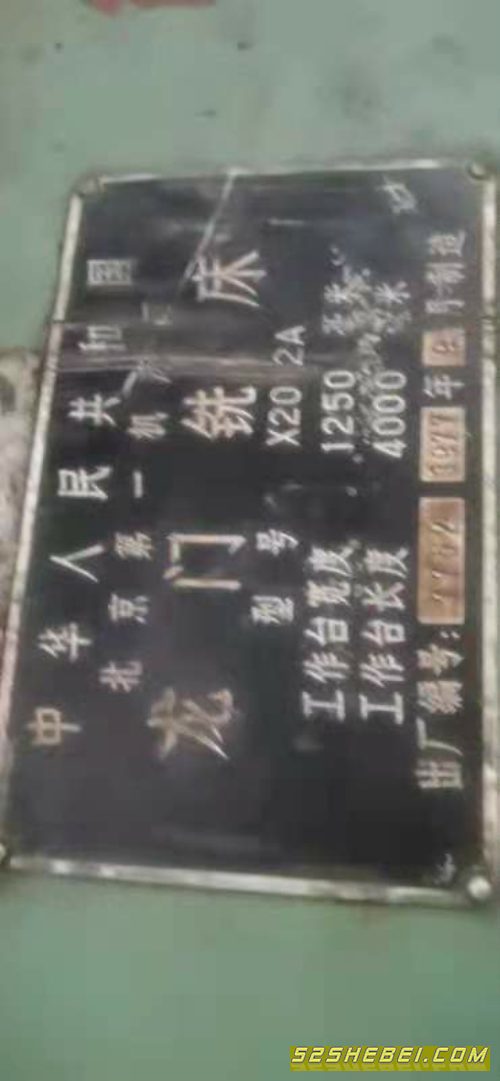 中华人民共和国
北京第一机床厂
龙门铣床
型号 X2012A
工作台宽度 1250 毫米
工作台长度 4000 毫米
出厂编号: 1977年9月制造
52SHEBEI.COM